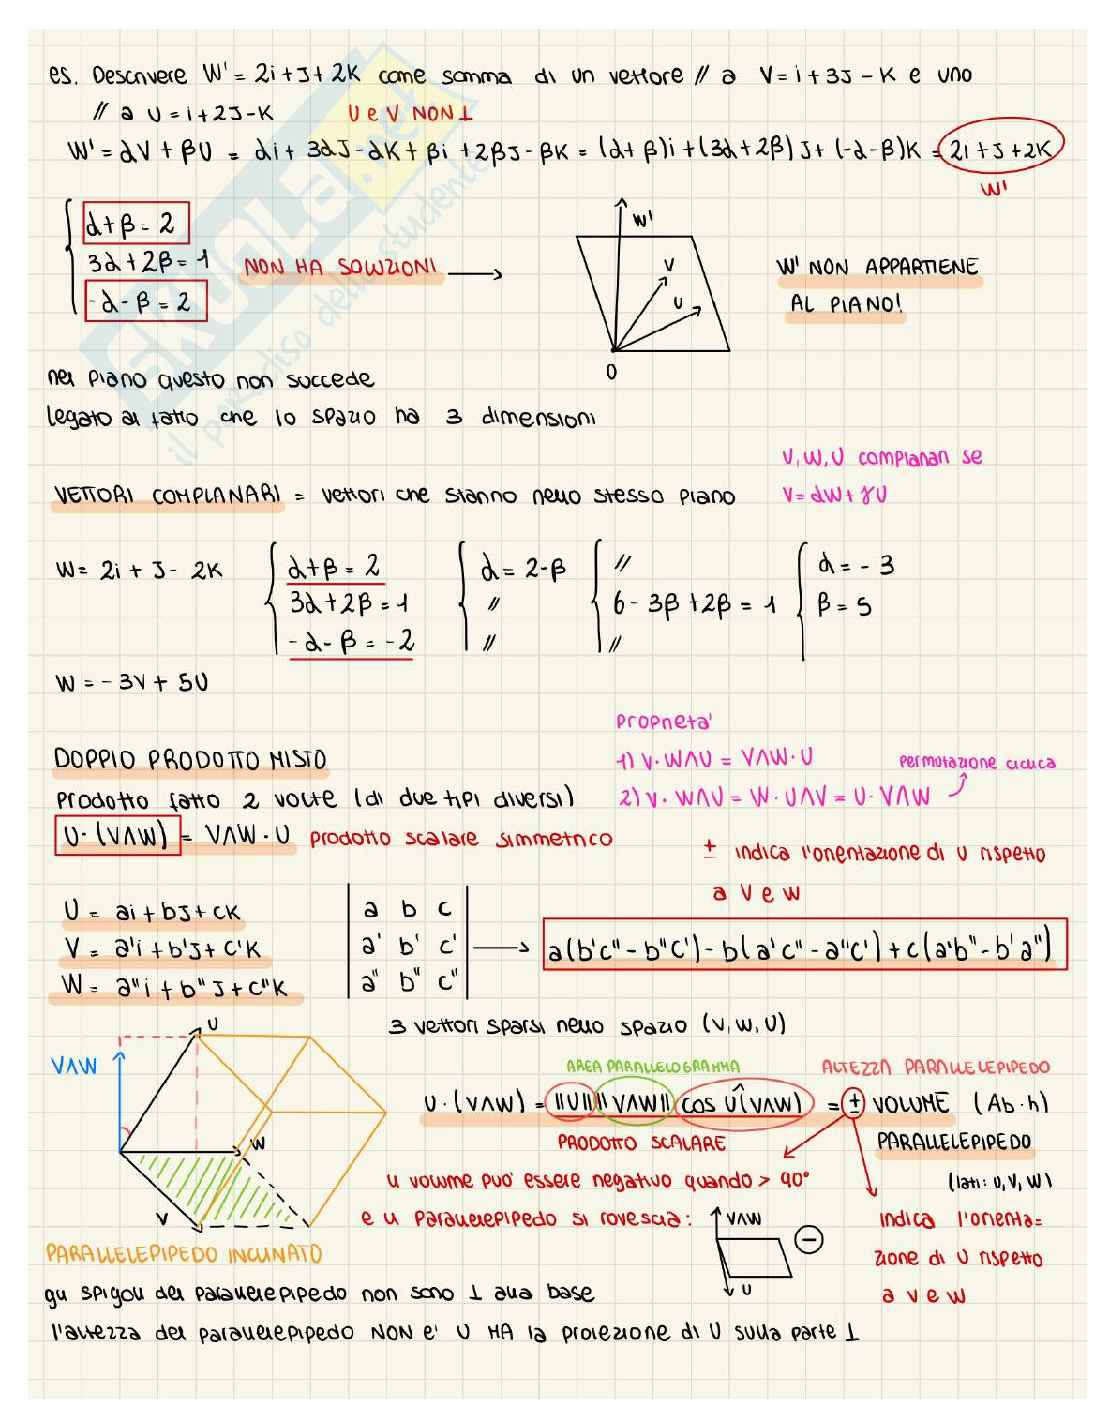 es. Descrivere W' = 2i + J + 2K come somma di un vettore // a V = i + 3J - K e uno
// a U = i + 2J - K U e V NON ⊥
W' = αV + βU = αi + 3αJ - αK + βi + 2βJ - βK = (α + β)i + (3α + 2β)J + (-α - β)K = 2i + J + 2K
W'
α + β = 2
3α + 2β = 1
-α - β = 2
NON HA SOLUZIONI
W'
V
U
O
W' NON APPARTIENE
AL PIANO!
nel piano questo non succede
legato al fatto che lo spazio ha 3 dimensioni
V, W, U complanari se
V = αW + γU
VETTORI COMPLANARI = vettori che stanno nello stesso piano
W = 2i + J - 2K
α + β = 2
3α + 2β = 1
-α - β = -2
α = 2 - β
//
//
//
6 - 3β + 2β = 1
//
α = -3
β = 5
W = -3V + 5U
proprietà
DOPPIO PRODOTTO MISTO
1) V · W∧U = V∧W · U
permutazione ciclica
prodotto fatto 2 volte (di due tipi diversi)
2) V · W∧U = W · U∧V = U · V∧W
U · (V∧W) = V∧W · U prodotto scalare simmetrico
± indica l'orientazione di U rispetto
a V e W
U = ai + bJ + cK
V = a'i + b'J + c'K
W = a"i + b"J + c"K
a b c
a' b' c'
a" b" c"
a(b'c" - b"c') - b(a'c" - a"c') + c(a'b" - b'a")
3 vettori sparsi nello spazio (V, W, U)
U
V∧W
W
V
AREA PARALLELOGRAMMA
ALTEZZA PARALLELEPIPEDO
U · (V∧W) = ||U|| ||V∧W|| cos U^(V∧W) = ± VOLUME (Ab · h)
PRODOTTO SCALARE
PARALLELEPIPEDO
(lati: U, V, W)
il volume può essere negativo quando > 90°
e il parallelepipedo si rovescia:
V∧W
U
−
indica l'orienta=
zione di U rispetto
a V e W
PARALLELEPIPEDO INCLINATO
gli spigoli del parallelepipedo non sono ⊥ alla base
l'altezza del parallelepipedo NON è U MA la proiezione di U sulla parte ⊥
SKUOLA.net
il paradiso dello studente